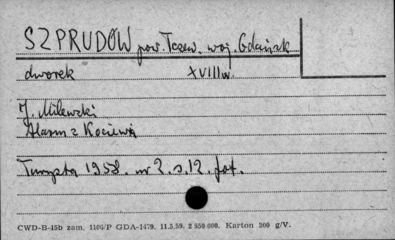 SZPRUDOWO pow. Tczew. woj. Gdańsk
dworek XVIII w.
J. Milewski
Alarm z Kociewia
Turysta 1958. nr 2. s. 12. fot.
CWD-B-15b zam. 1106/P GDA-1479. 11.5.59. 2 950 000. Karton 300 g/V.